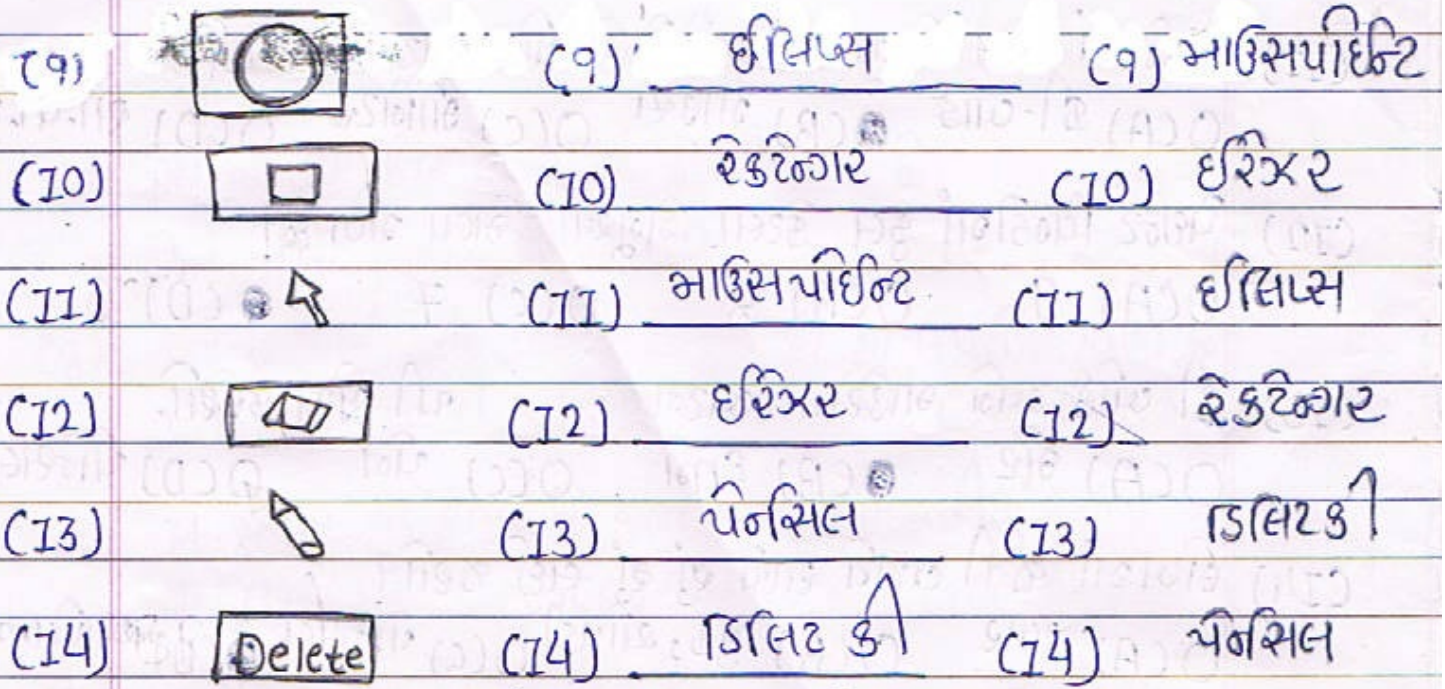 (9) (9) ઈલિપ્સ (9) માઉસપોઈન્ટ
(10) (10) રેકટેન્ગર (10) ઈરેઝર
(11) (11) માઉસપોઈન્ટ (11) ઈલિપ્સ
(12) (12) ઈરેઝર (12) રેકટેન્ગર
(13) (13) પેનસિલ (13) ડિલિટ કી
(14) Delete (14) ડિલિટ કી (14) પેનસિલ